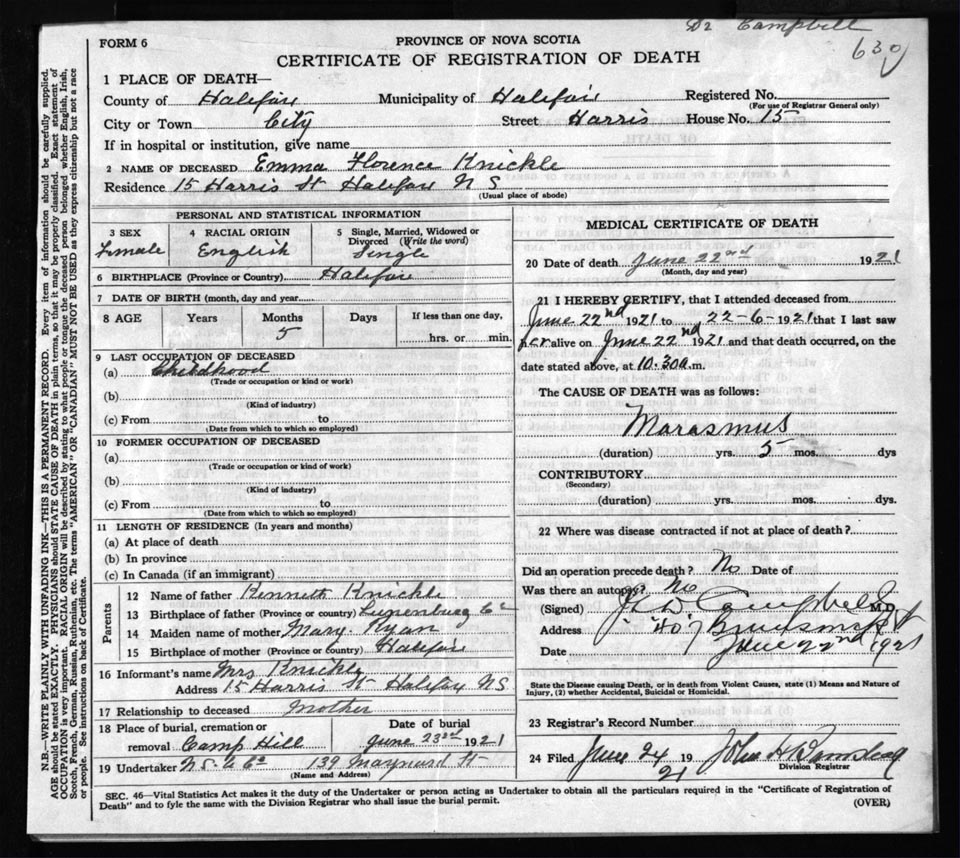 Dr Campbell
639
FORM 6
PROVINCE OF NOVA SCOTIA
CERTIFICATE OF REGISTRATION OF DEATH
1 PLACE OF DEATH—
County of Halifax Municipality of Halifax Registered No.
(For use of Registrar General only)
City or Town City Street Harris House No. 15
If in hospital or institution, give name
2 NAME OF DECEASED Emma Florence Knickle
Residence 15 Harris St Halifax N S
(Usual place of abode)
PERSONAL AND STATISTICAL INFORMATION
3 SEX 4 RACIAL ORIGIN 5 Single, Married, Widowed or
Divorced (Write the word)
Female English Single
6 BIRTHPLACE (Province or Country) Halifax
7 DATE OF BIRTH (month, day and year)
8 AGE Years Months Days If less than one day,
5 hrs. or min.
9 LAST OCCUPATION OF DECEASED
(a) Childhood
(Trade or occupation or kind or work)
(b)
(Kind of industry)
(c) From to
(Date from which to which so employed)
10 FORMER OCCUPATION OF DECEASED
(a)
(Trade or occupation or kind of work)
(b)
(Kind of industry)
(c) From to
(Date from which to which so employed)
11 LENGTH OF RESIDENCE (In years and months)
(a) At place of death
(b) In province
(c) In Canada (if an immigrant)
Parents
12 Name of father Kenneth Knickle
13 Birthplace of father (Province or country) Lunenburg Co
14 Maiden name of mother Mary Ryan
15 Birthplace of mother (Province or country) Halifax
16 Informant's name Mrs Knickle
Address 15 Harris St Halifax NS
17 Relationship to deceased Mother
18 Place of burial, cremation or Date of burial
removal Camp Hill June 23rd 1921
19 Undertaker N.S. U Co 139 Maynard St
(Name and Address)
MEDICAL CERTIFICATE OF DEATH
20 Date of death June 22nd 1921
(Month, day and year)
21 I HEREBY CERTIFY, that I attended deceased from
June 22nd 1921 to 22-6-1921 that I last saw
her alive on June 22nd 1921 and that death occurred, on the
date stated above, at 10.30 a.m.
The CAUSE OF DEATH was as follows:
Marasmus
(duration) yrs. 5 mos. dys
CONTRIBUTORY
(Secondary)
(duration) yrs. mos. dys.
22 Where was disease contracted if not at place of death?
Did an operation precede death? No Date of
Was there an autopsy? No
(Signed) Campbell M.D.
Address 407 Brunswick St
Date June 22nd 1921
State the Disease causing Death, or in death from Violent Causes, state (1) Means and Nature of
Injury, (2) whether Accidental, Suicidal or Homicidal.
23 Registrar's Record Number
24 Filed June 24 19 21 John A
Division Registrar
SEC. 46—Vital Statistics Act makes it the duty of the Undertaker or person acting as Undertaker to obtain all the particulars required in the "Certificate of Registration of
Death" and to fyle the same with the Division Registrar who shall issue the burial permit.
(OVER)
N.B.—WRITE PLAINLY WITH UNFADING INK—THIS IS A PERMANENT RECORD. Every item of information should be carefully supplied.
AGE should be stated EXACTLY. PHYSICIANS should STATE CAUSE OF DEATH in plain terms, so that it may be properly classified. Exact statement of
OCCUPATION is very important. RACIAL ORIGIN will be described by stating to what people or tongue the deceased person belonged whether English, Irish,
Scotch, French, German, Russian, Ruthenian, etc. The terms "AMERICAN" OR "CANADIAN" MUST NOT BE USED as they express citizenship but not a race
or people. See instructions on back of Certificate.